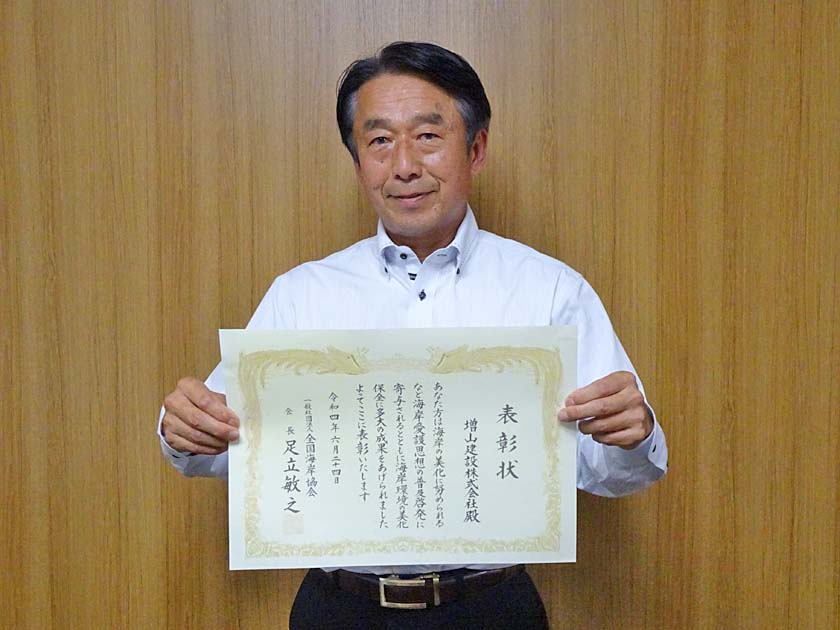 表彰状
増山建設株式会社殿
あなた方は海岸の美化に努められる
など海岸愛護思想の普及啓発に
寄与されるとともに海岸環境の美化
保全に多大の成果をあげられました
よってここに表彰いたします
令和四年六月二十四日
一般社団法人全国海岸協会
会長足立敏之